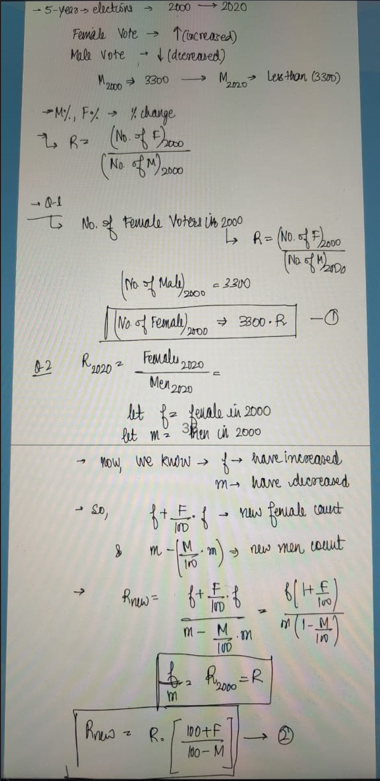 - 5-years → elections → 2000 → 2020
Female Vote → ↑ (increased)
Male Vote → ↓ (decreased)
M2000 ⇒ 3300 → M2020 → Less than (3300)
→ M%, F% → % change
↳ R = (No. of F)2000 / (No. of M)2000
→ Q-1
↳ No. of Female Voters in 2000
↳ R = (No. of F)2000 / (No. of M)2000
(No. of Male)2000 = 3300
(No. of Female)2000 ⇒ 3300·R — ①
Q-2 R2020 = Female2020 / Men2020 =
let f = female in 2000
let m = men in 2000
→ now, we know → f → have increased
m → have decreased
→ so, f + F/100 · f → new female count
& m - (M/100 · m) → new men count
→ Rnew = (f + F/100 · f) / (m - M/100 · m) = f(1 + F/100) / m(1 - M/100)
f/m = R2000 = R
Rnew = R · [(100 + F) / (100 - M)] → ②